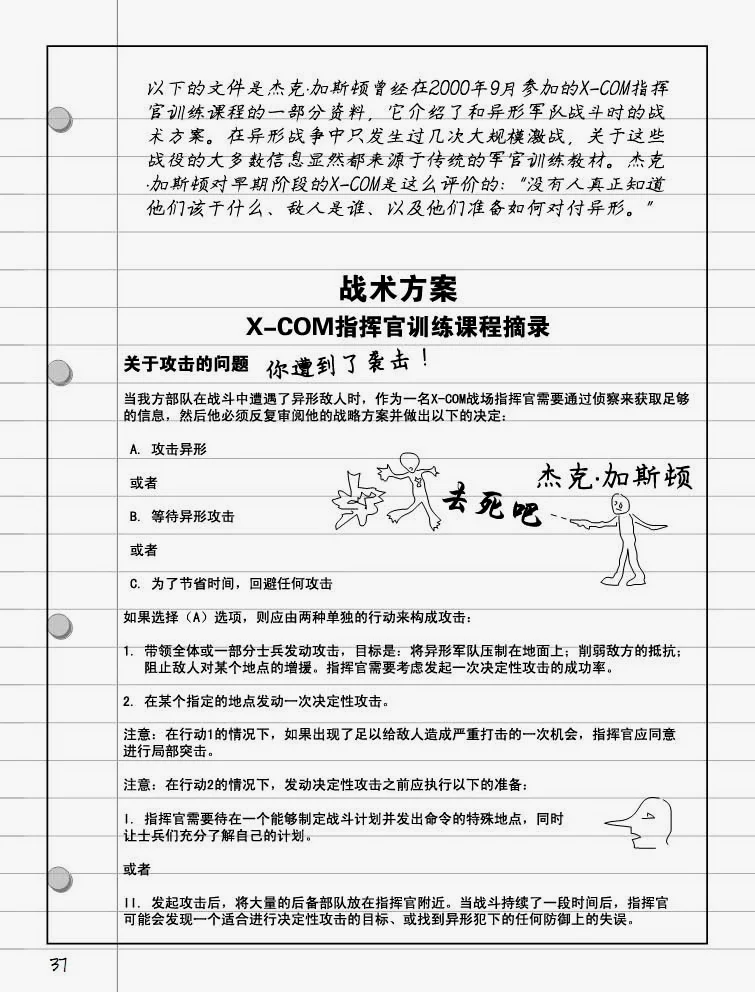 以下的文件是杰克·加斯顿曾经在2000年9月参加的X-COM指挥
官训练课程的一部分资料，它介绍了和异形军队战斗时的战
术方案。在异形战争中只发生过几次大规模激战，关于这些
战役的大多数信息显然都来源于传统的军官训练教材。杰克
·加斯顿对早期阶段的X-COM是这么评价的：“没有人真正知道
他们该干什么、敌人是谁、以及他们准备如何对付异形。”
战术方案
X-COM指挥官训练课程摘录
关于攻击的问题 你遭到了袭击！
当我方部队在战斗中遭遇了异形敌人时，作为一名X-COM战场指挥官需要通过侦察来获取足够
的信息，然后他必须反复审阅他的战略方案并做出以下的决定：
A. 攻击异形
或者
杰克·加斯顿
去死吧
B. 等待异形攻击
或者
C. 为了节省时间，回避任何攻击
如果选择（A）选项，则应由两种单独的行动来构成攻击：
1. 带领全体或一部分士兵发动攻击，目标是：将异形军队压制在地面上；削弱敌方的抵抗；
阻止敌人对某个地点的增援。指挥官需要考虑发起一次决定性攻击的成功率。
2. 在某个指定的地点发动一次决定性攻击。
注意：在行动1的情况下，如果出现了足以给敌人造成严重打击的一次机会，指挥官应同意
进行局部突击。
注意：在行动2的情况下，发动决定性攻击之前应执行以下的准备：
I. 指挥官需要待在一个能够制定战斗计划并发出命令的特殊地点，同时
让士兵们充分了解自己的计划。
或者
II. 发起攻击后，将大量的后备部队放在指挥官附近。当战斗持续了一段时间后，指挥官
可能会发现一个适合进行决定性攻击的目标、或找到异形犯下的任何防御上的失误。
37